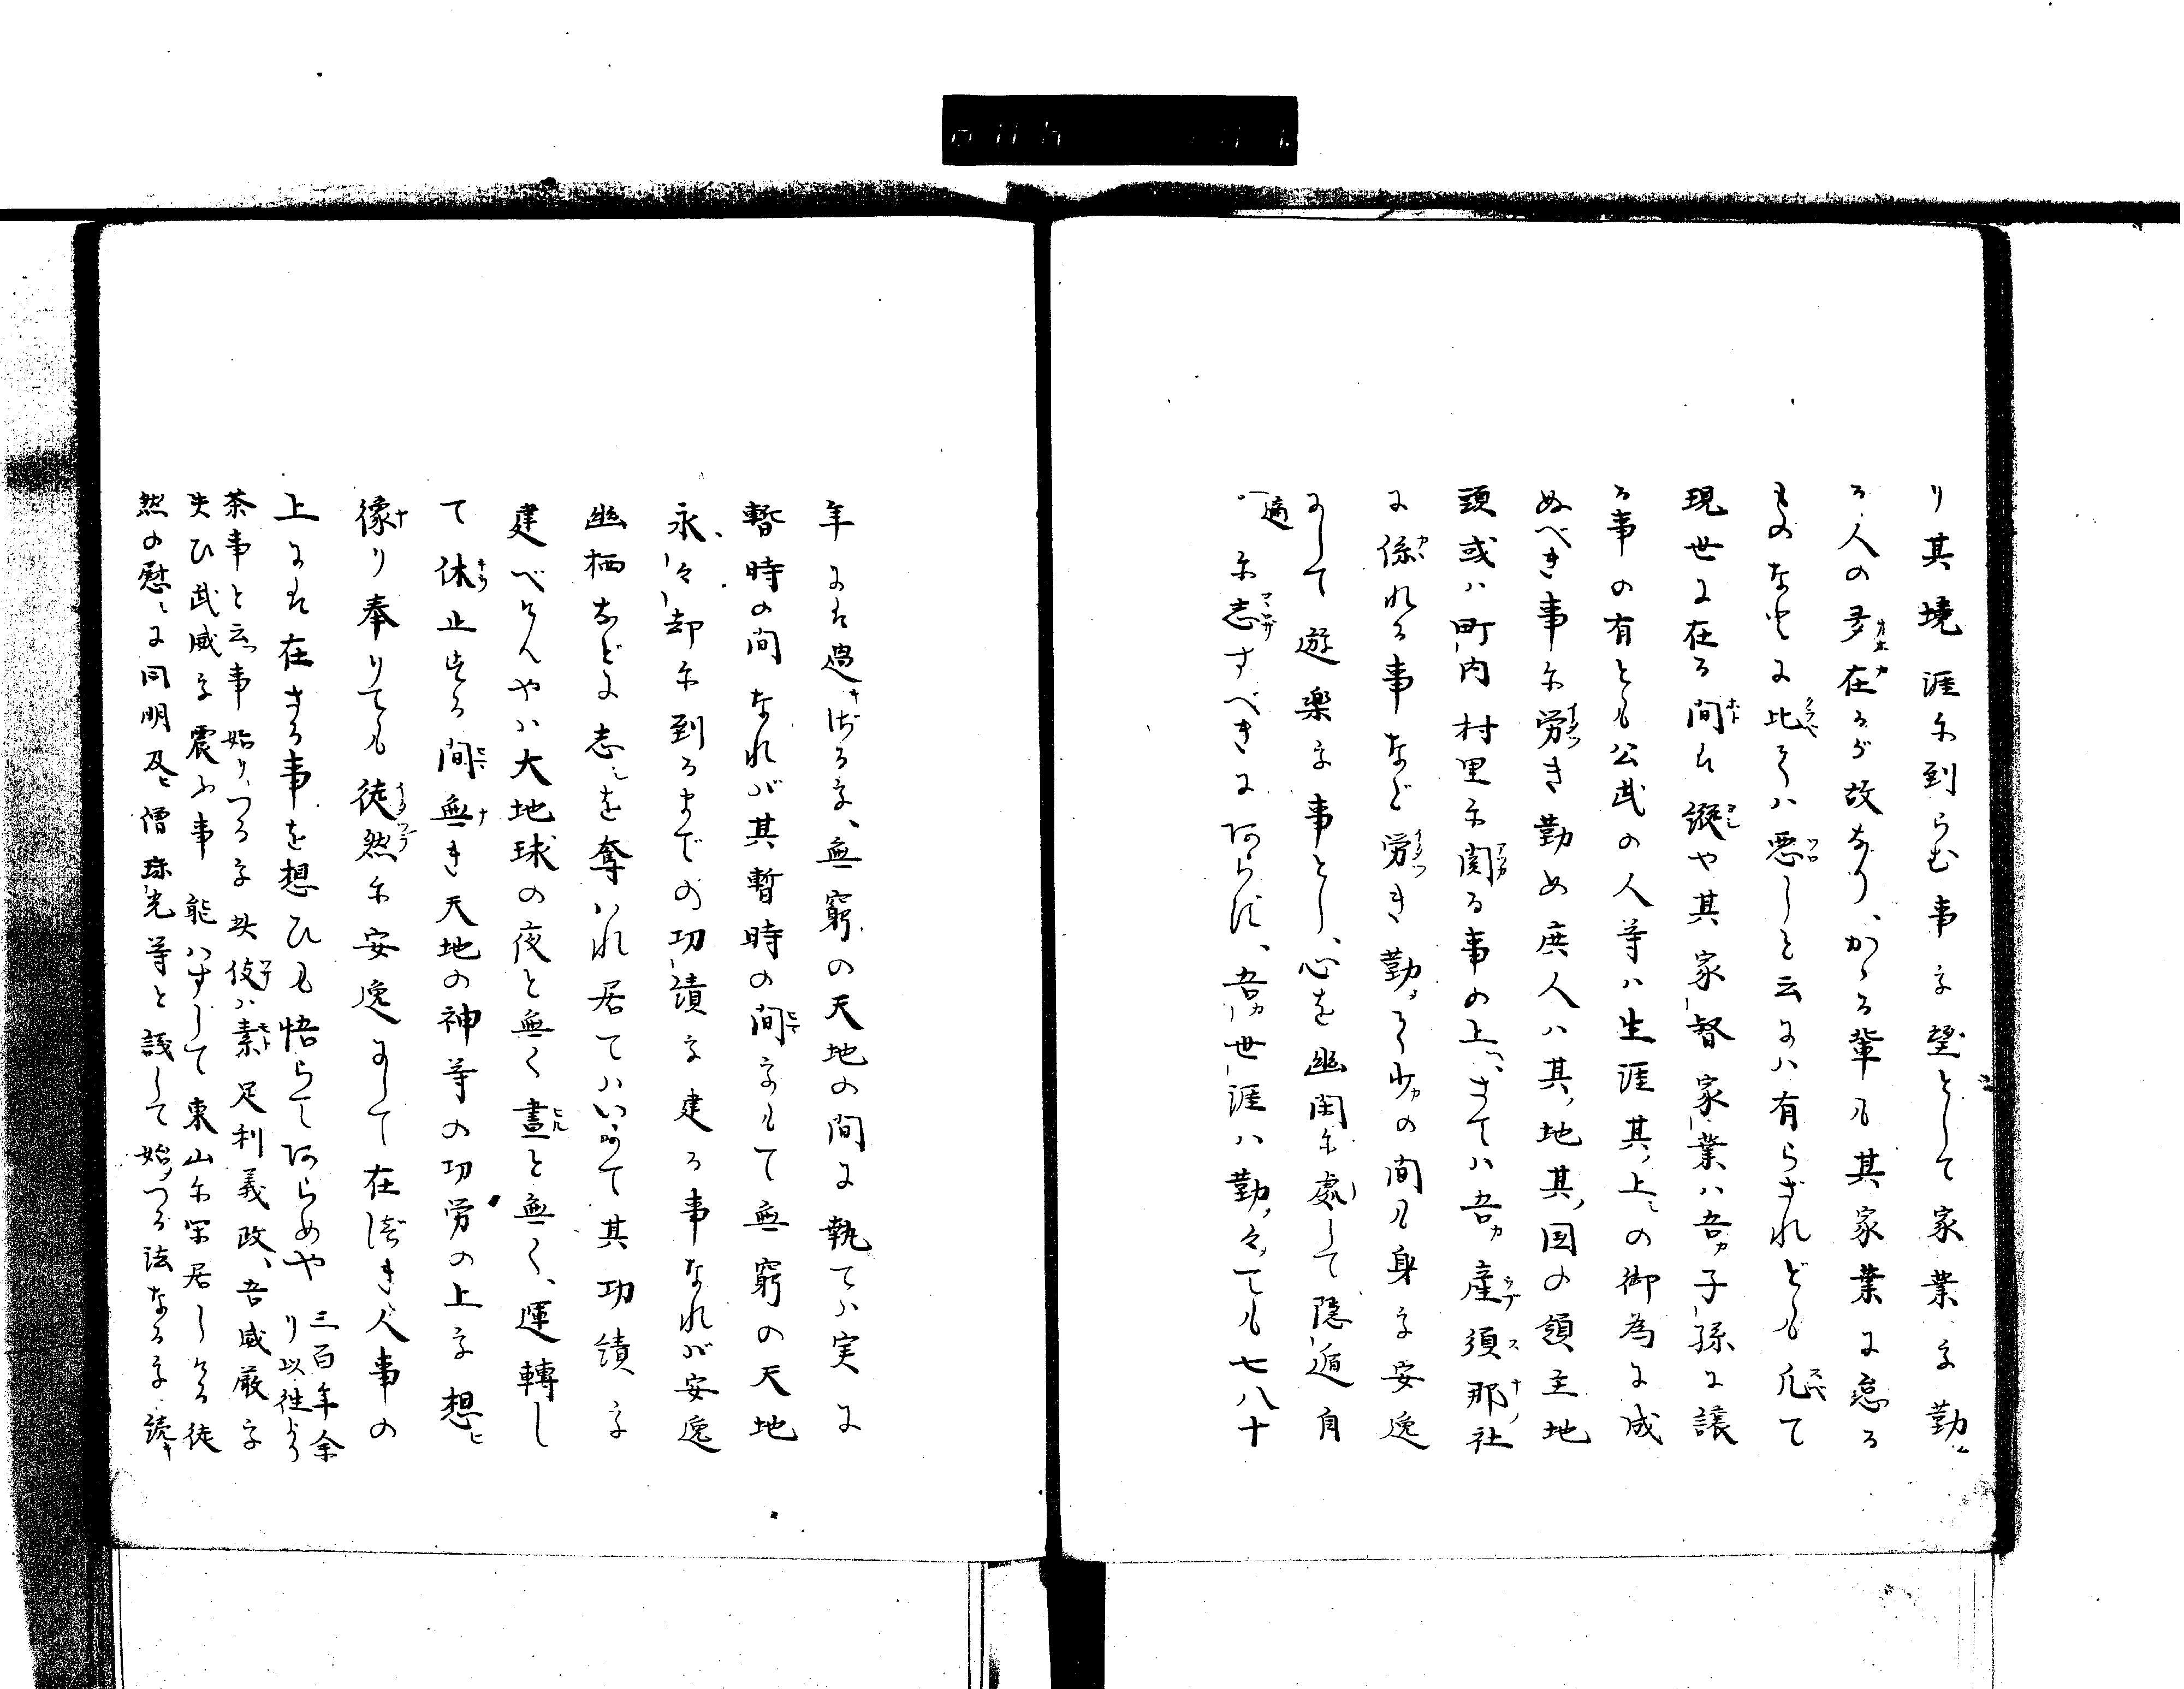 り其境涯尓到らむ事乎望として家業乎勤ム
る人の多在るが故なり、かゝる輩も其家業に怠る
ものなきに比そハ悪しと云にハ有らざれども凡て
現世に在る間は縦や其家督家業ハ吾カ子孫に譲
る事の有とも公武の人等ハ生涯其ノ上ミの御為に成
ぬべき事尓労き勤め庶人ハ其ノ地其ノ国の領主地
頭或ハ町内村里尓関る事の上ヘさてハ吾カ産須那ノ社
に係れる事など労き勤ノそ少カの間も身乎安逸
にして遊楽乎事とし、心を幽閑尓處して隠遁自
適尓志すべきに阿らず、吾カ世涯ハ勤ノ々ても七八十
年には過ざる乎、無窮の天地の間に執てハ実に
暫時の間なれバ其暫時の間乎もて無窮の天地
永々却尓到るまでの功績乎建る事なれバ安逸
幽栖などに志シを奪ハれ居てハいかで其功績乎
建べけんやハ大地球の夜と無く晝と無く、運轉し
て休止せる間無き天地の神等の功労の上乎想ヒ
像り奉りても徒然尓安逸にして在べき人事の
上には在ざる事を想ひも悟らで阿らめや 三百年余
り以往より
茶事と云ッ事始りつる乎其彼ハ素足利義政、吾威厳乎
失ひ武威乎震ふ事能ハずして東山尓閑居しける徒
然の慰ミに同明及ヒ僧珠光等と議して始ノつる法なる乎、読キ